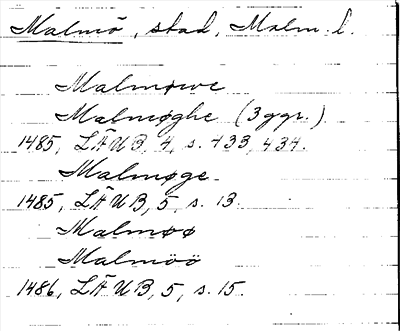 Malmö, stad, Malm. l.
Malmøwe
Malmøghe (3 ggr.)
1485, LÄUB, 4, s. 433, 434.
Malmøge
1485, LÄUB, 5, s. 13.
Malmøø
Malmöö
1486, LÄUB, 5, s. 15.